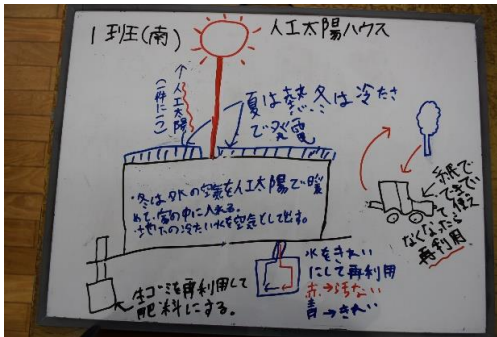 1班(南)
人工太陽ハウス
←人工太陽
(一軒に1つ)
夏は熱 冬は冷たさ
で発電
・冬は外の空気を人工太陽で暖
めて、家の中に入れる。
・地下の冷たい水を空気として出す。
生ゴミを再利用して
肥料にする。
水をきれい
にして再利用
赤→汚ない
青→きれい
使え
なくなったら
再利用